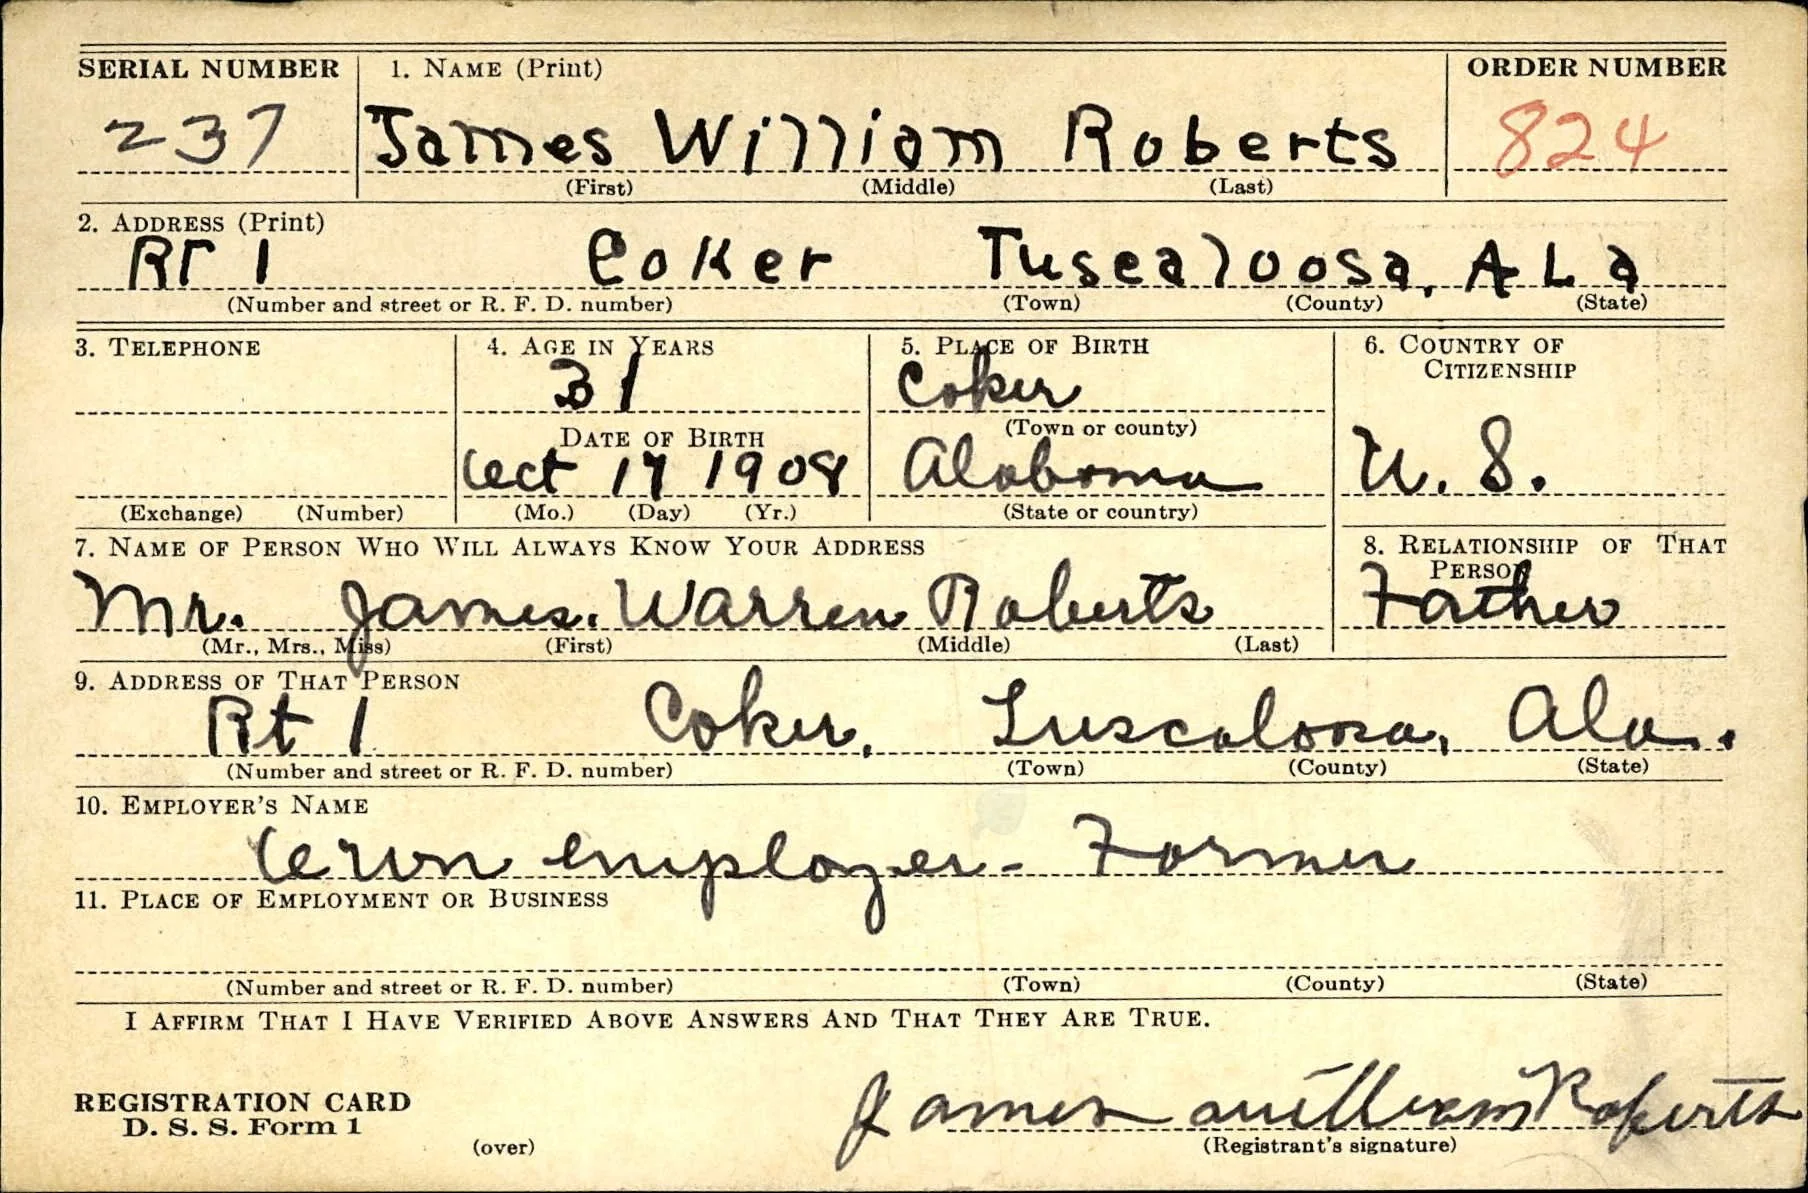 SERIAL NUMBER 1. NAME (Print) ORDER NUMBER
237 James William Roberts 824
(First) (Middle) (Last)
2. ADDRESS (Print)
Rt 1 Coker Tuscaloosa, ALa
(Number and street or R. F. D. number) (Town) (County) (State)
3. TELEPHONE 4. AGE IN YEARS 5. PLACE OF BIRTH 6. COUNTRY OF CITIZENSHIP
31 Coker
DATE OF BIRTH (Town or county)
Oct 17 1908 Alabama U. S.
(Exchange) (Number) (Mo.) (Day) (Yr.) (State or country)
7. NAME OF PERSON WHO WILL ALWAYS KNOW YOUR ADDRESS 8. RELATIONSHIP OF THAT PERSON
Mr. James. Warren Roberts Father
(Mr., Mrs., Miss) (First) (Middle) (Last)
9. ADDRESS OF THAT PERSON
Rt 1 Coker, Tuscaloosa, Ala.
(Number and street or R. F. D. number) (Town) (County) (State)
10. EMPLOYER'S NAME
Own employer - Farmer
11. PLACE OF EMPLOYMENT OR BUSINESS
(Number and street or R. F. D. number) (Town) (County) (State)
I AFFIRM THAT I HAVE VERIFIED ABOVE ANSWERS AND THAT THEY ARE TRUE.
REGISTRATION CARD
D. S. S. Form 1
James William Roberts
(over) (Registrant's signature)